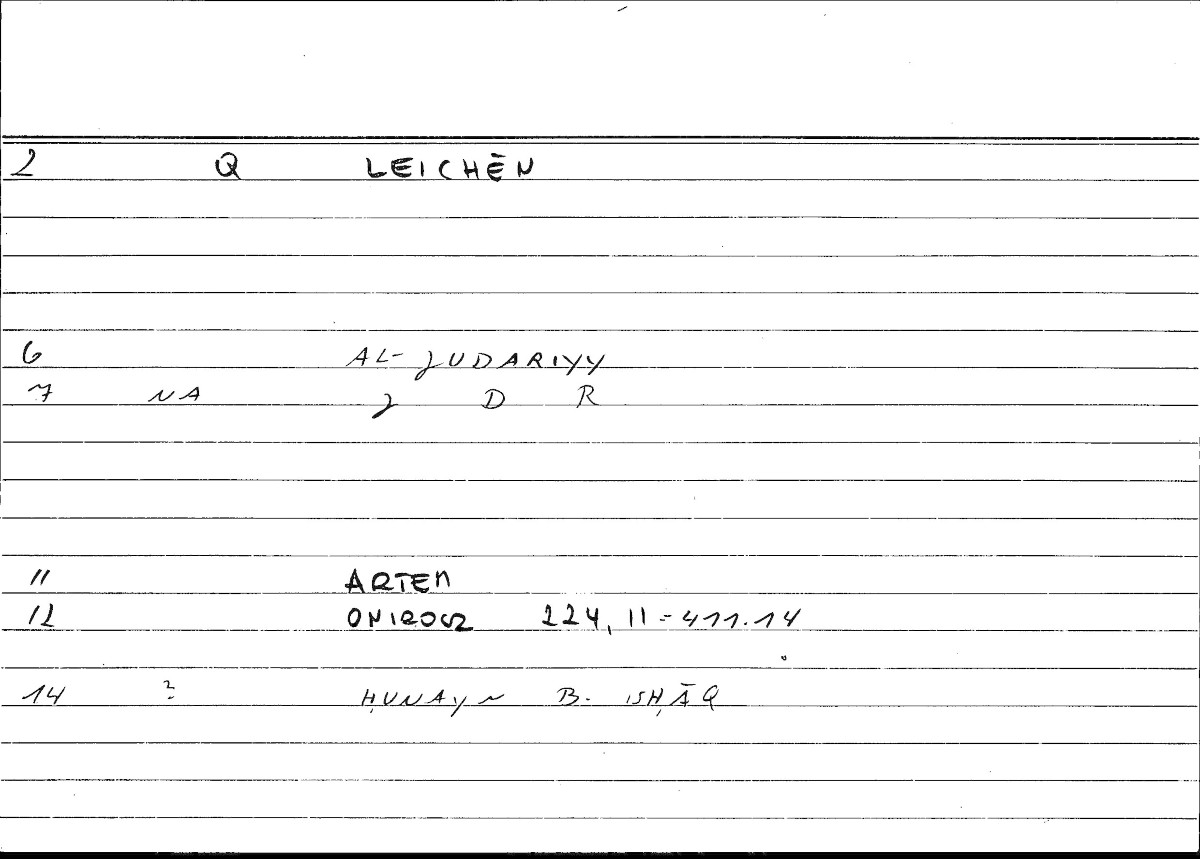 2 Q LEICHĒN
6 AL-JUDARIYY
7 NA J D R
11 ARTEM
12 ONIROCR 224, 11 = 411.14
14 ? ḤUNAYN B. ISḤĀQ